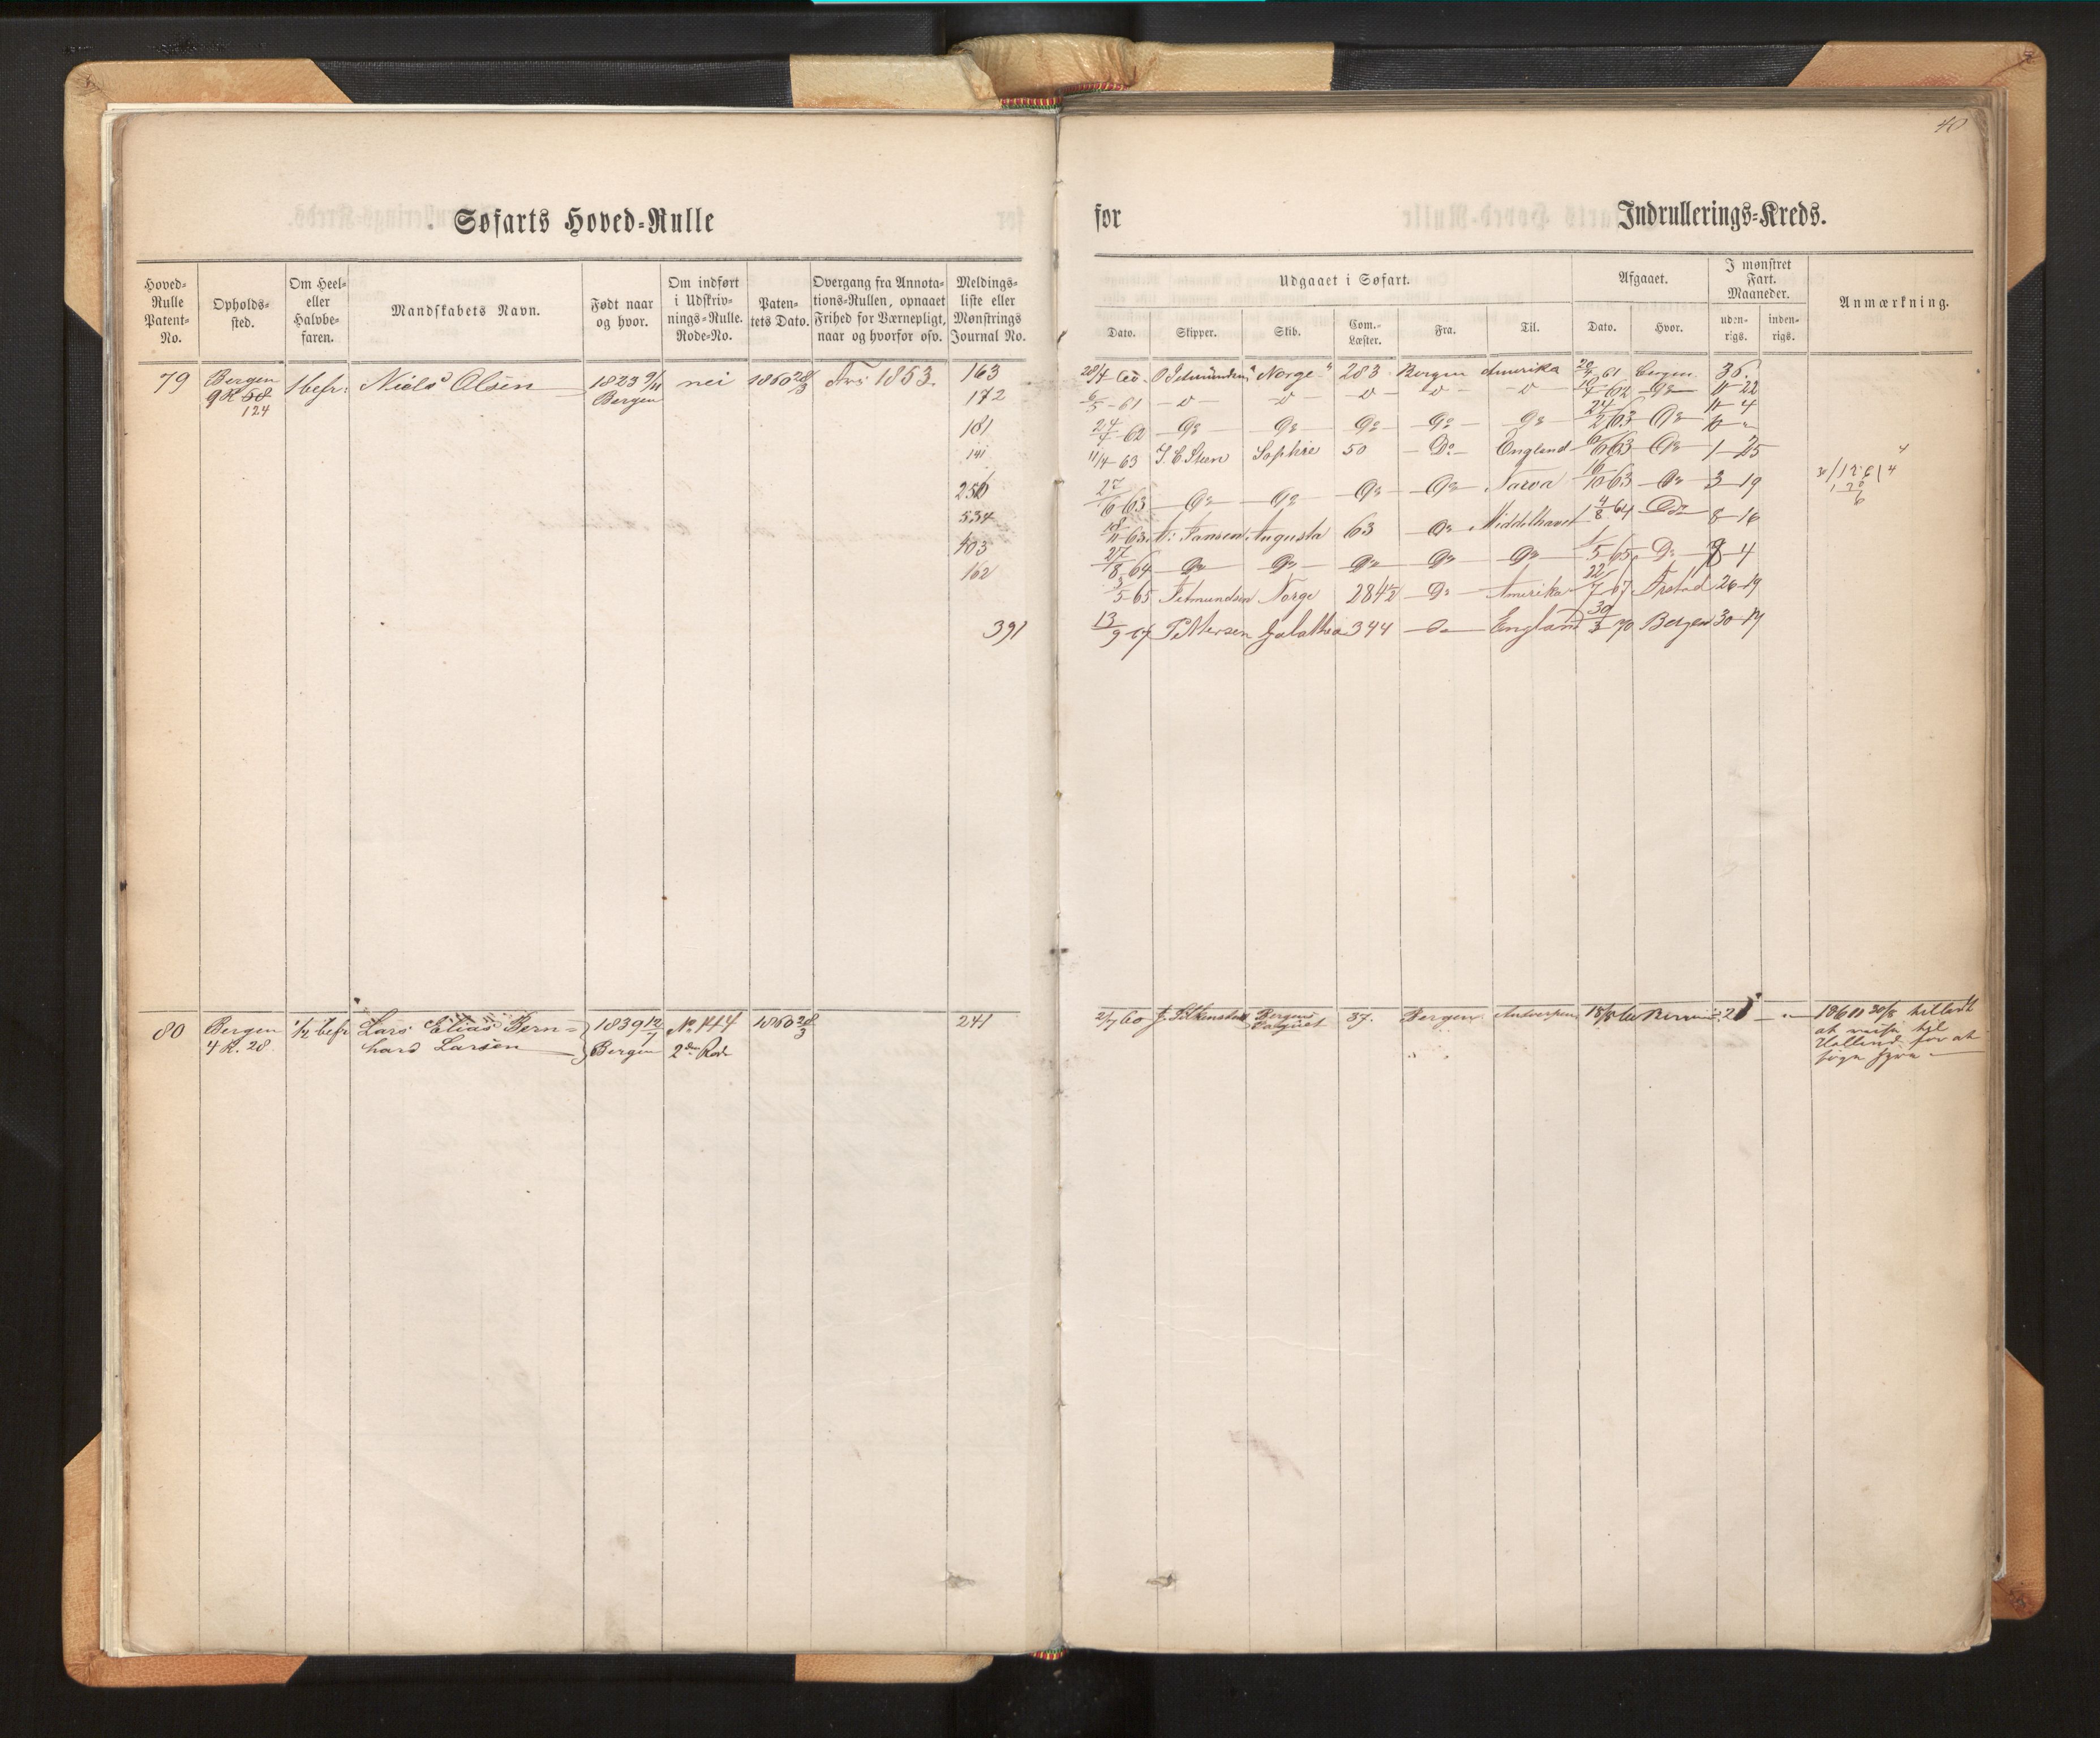 40
Søfarts Hoved-Rulle
for
Indrullerings-Kreds.
Hoved-Rulle Patent-No.
Opholds-sted.
Om Heel- eller Halvbe-faren.
Mandskabets Navn.
Født naar og hvor.
Om indført i Udskriv-nings-Rulle. Rode-No.
Paten-tets Dato.
Overgang fra Annota-tions-Rullen, opnaaet Frihed for Værnepligt, naar og hvorfor osv.
Meldings-liste eller Mønstrings Journal No.
Udgaaet i Søfart.
Dato.
Skipper.
Skib.
Com.-Læster.
Fra.
Til.
Afgaaet.
Dato.
Hvor.
I mønstret Fart. Maaneder.
uden-rigs.
inden-rigs.
Anmærkning.
79 Bergen 1 befr: Niels Olsen 1823 9/11 nei 1860 28/3 1853. 163
9 R 58 Bergen 172
124
181
141
256
534
103
162
391
28/4 60. Norge 283 Bergen Amerika 61 Bergen 36.
6/5 - 61 22
24/4 - 62 Do Do Do Do Do 24/2 63 Do 4
11/4 - 63 Sophie 50 - Do - England 6/6 63 Do 1 - 25
27/6 63 Do Do Do Do Narva 16/10 63 Do 3 - 19
18/11 63. Jansen Augusta 63 Do Middelhavet 4/8 64 Do 8 - 16
27/8 64 Do Do Do Do Do 5 65 Do 8 - 4
3/5 - 65 Norge 284 1/2 Do Amerika 22/7 67 26 - 19
13/9 - 67 Galathea 344 England 30/3 70 Bergen 30 - 17
80 Bergen 1/2 befr Lars Elias Bern= 1839 12/7 No 144 1860 28/3 241
4 R. 28. hard Larsen Bergen 2den Rode
2/7 60 Bergens 37. Bergen Antwerpen 18/8 60 Bergen 2
1860 30/8 tilladt
at reise til
Holland for at
søge Hyre